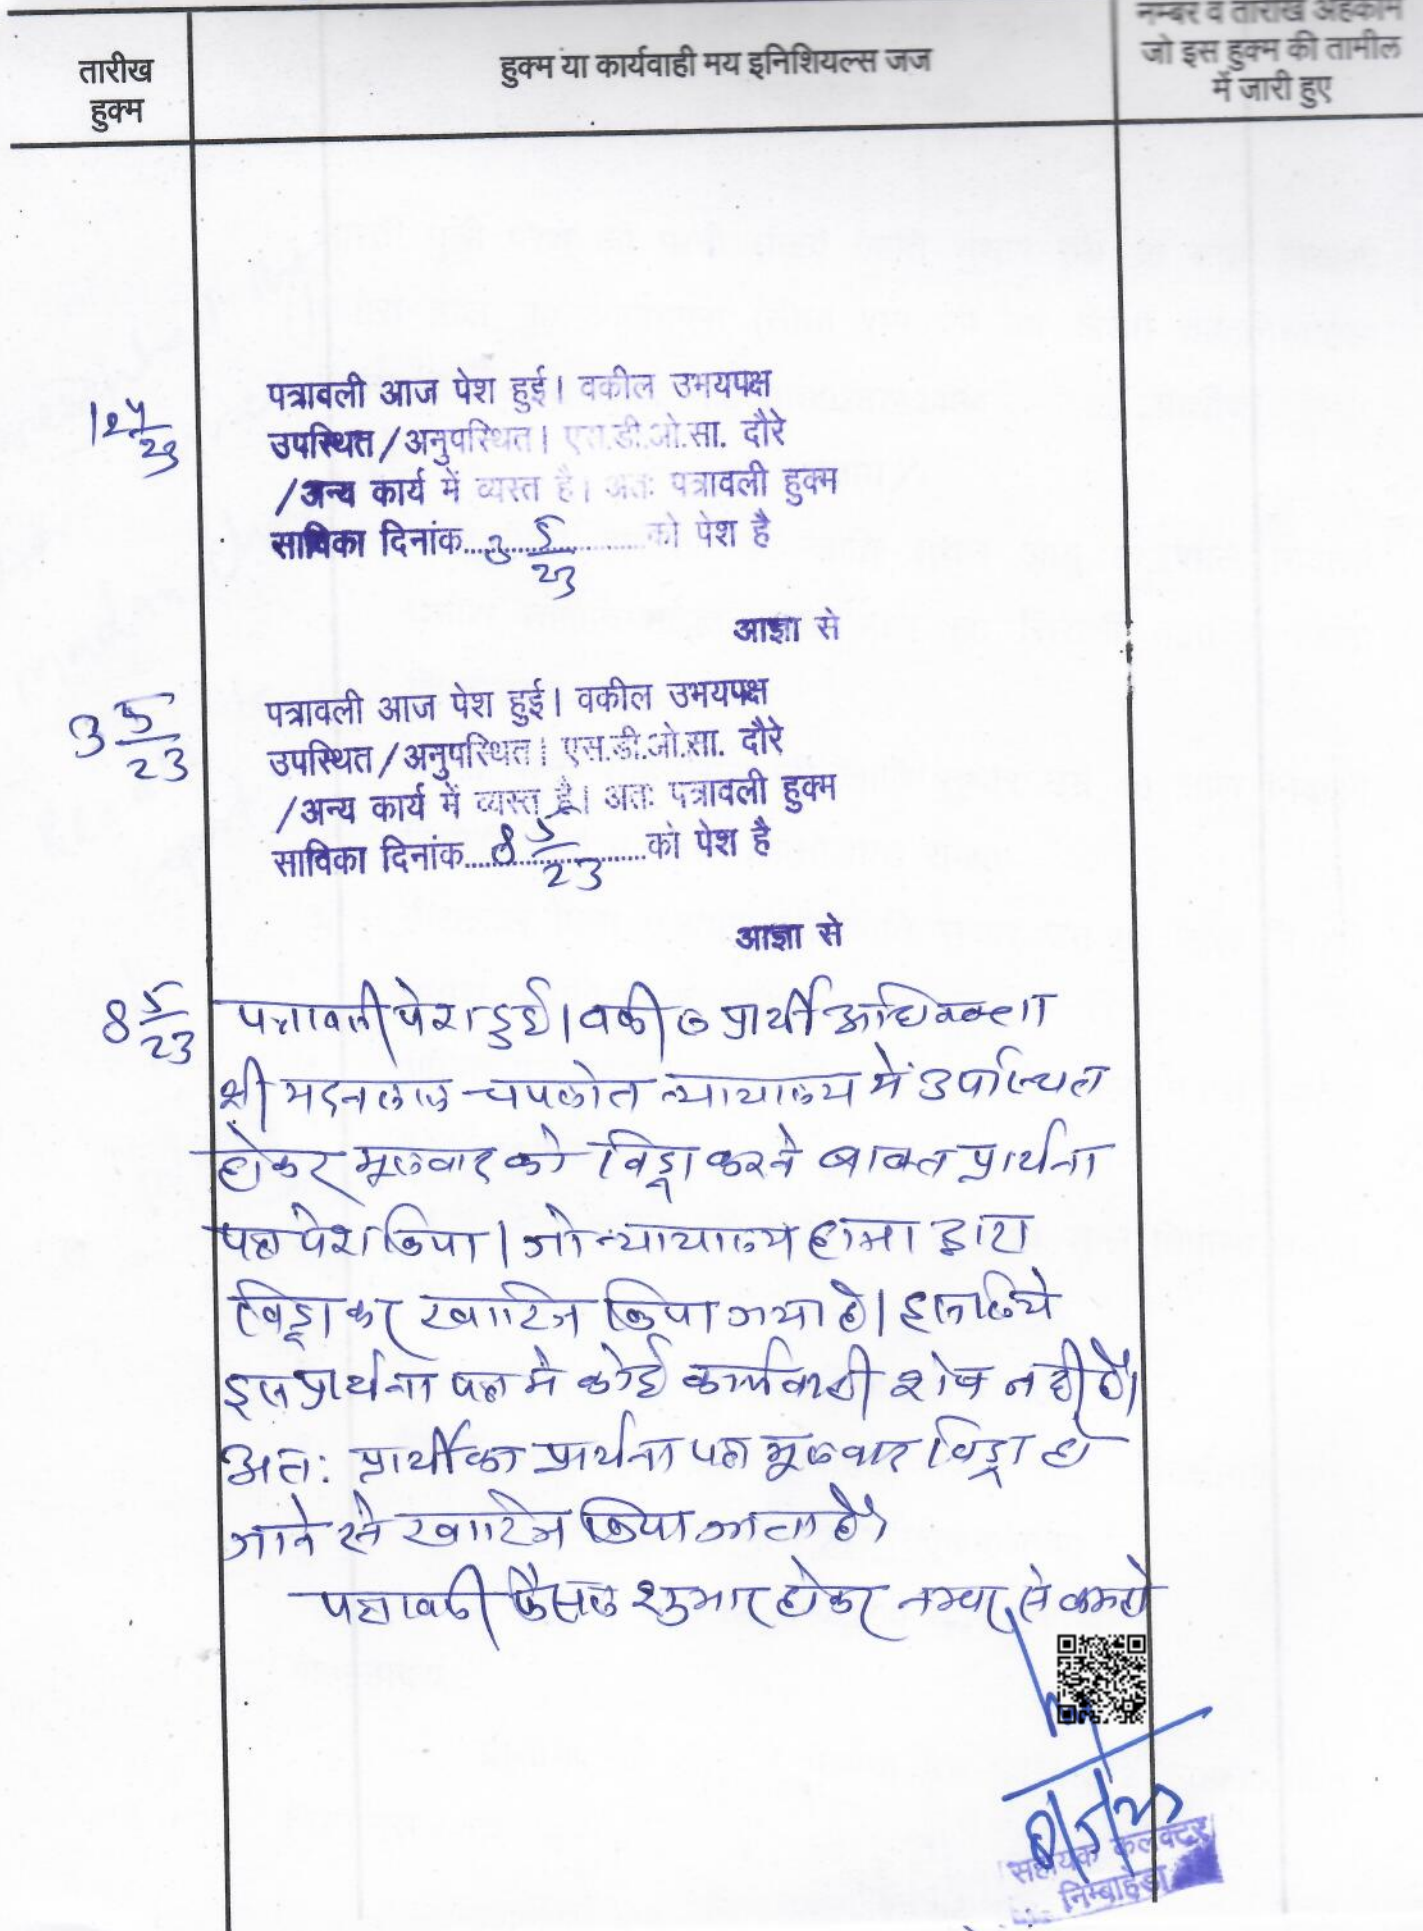 नम्बर व तारीख अहकाम
तारीख
हुक्म
हुक्म या कार्यवाही मय इनिशियल्स जज
जो इस हुक्म की तामील
में जारी हुए
12 4/23
पत्रावली आज पेश हुई। वकील उभयपक्ष
उपस्थित/अनुपस्थित। एस.डी.ओ.सा. दौरे
/अन्य कार्य में व्यस्त है। अतः पत्रावली हुक्म
साविका दिनांक....3 5/23....को पेश है
आज्ञा से
3 5/23
पत्रावली आज पेश हुई। वकील उभयपक्ष
उपस्थित/अनुपस्थित। एस.डी.ओ.सा. दौरे
/अन्य कार्य में व्यस्त है। अतः पत्रावली हुक्म
साविका दिनांक....8 5/23....को पेश है
आज्ञा से
8 5/23
पत्रावली पेश हुई। वकील प्रार्थी अधिवक्ता
श्री मदनलाल चपलोत न्यायालय में उपस्थित
होकर मूलवाद को विड्रा करने बाबत प्रार्थना
पत्र पेश किया। जो न्यायालय हाजा द्वारा
विड्रा कर खारिज किया गया है। इसलिये
इस प्रार्थना पत्र मे कोई कार्यवाही शेष नही है।
अतः प्रार्थी का प्रार्थना पत्र मूलवाद विड्रा हो
जाने से खारिज किया जाता है।
पत्रावली फैसल शुमार होकर नम्बर से कम हो
सहायक कलक्टर
निम्बाहेड़ा